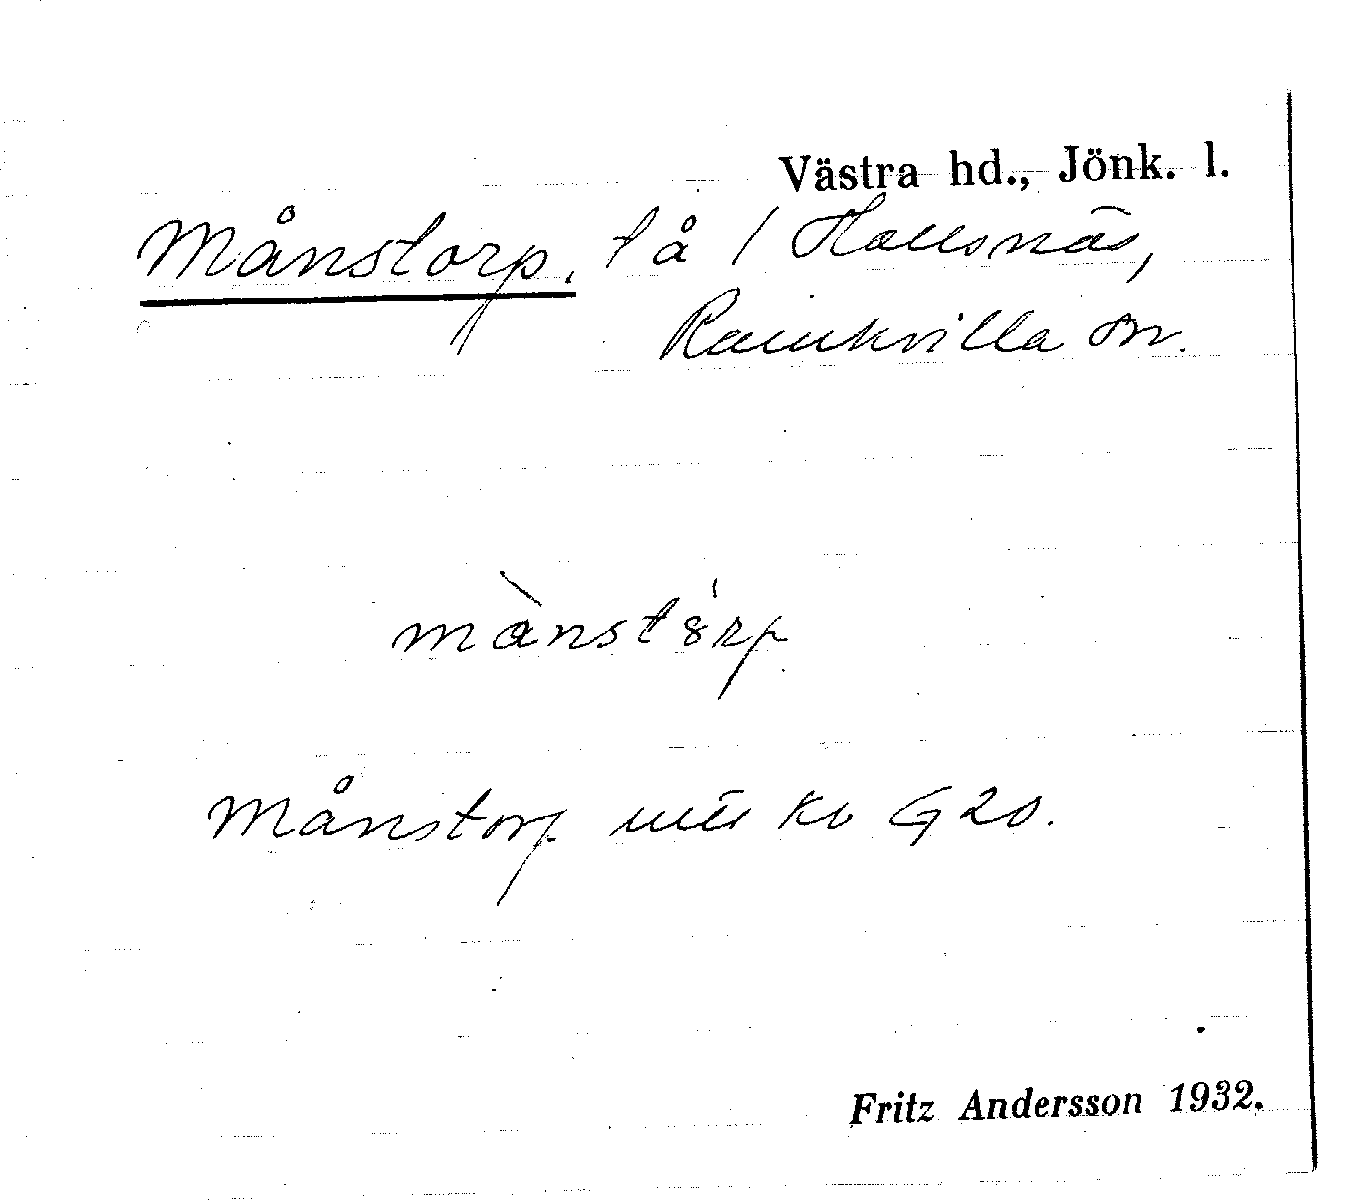 Västra hd., Jönk. l.
Månstorp, t å / Hallsnäs,
Ramkvilla sn.
mànstórp
Månstorp Kv G20.
Fritz Andersson 1932.